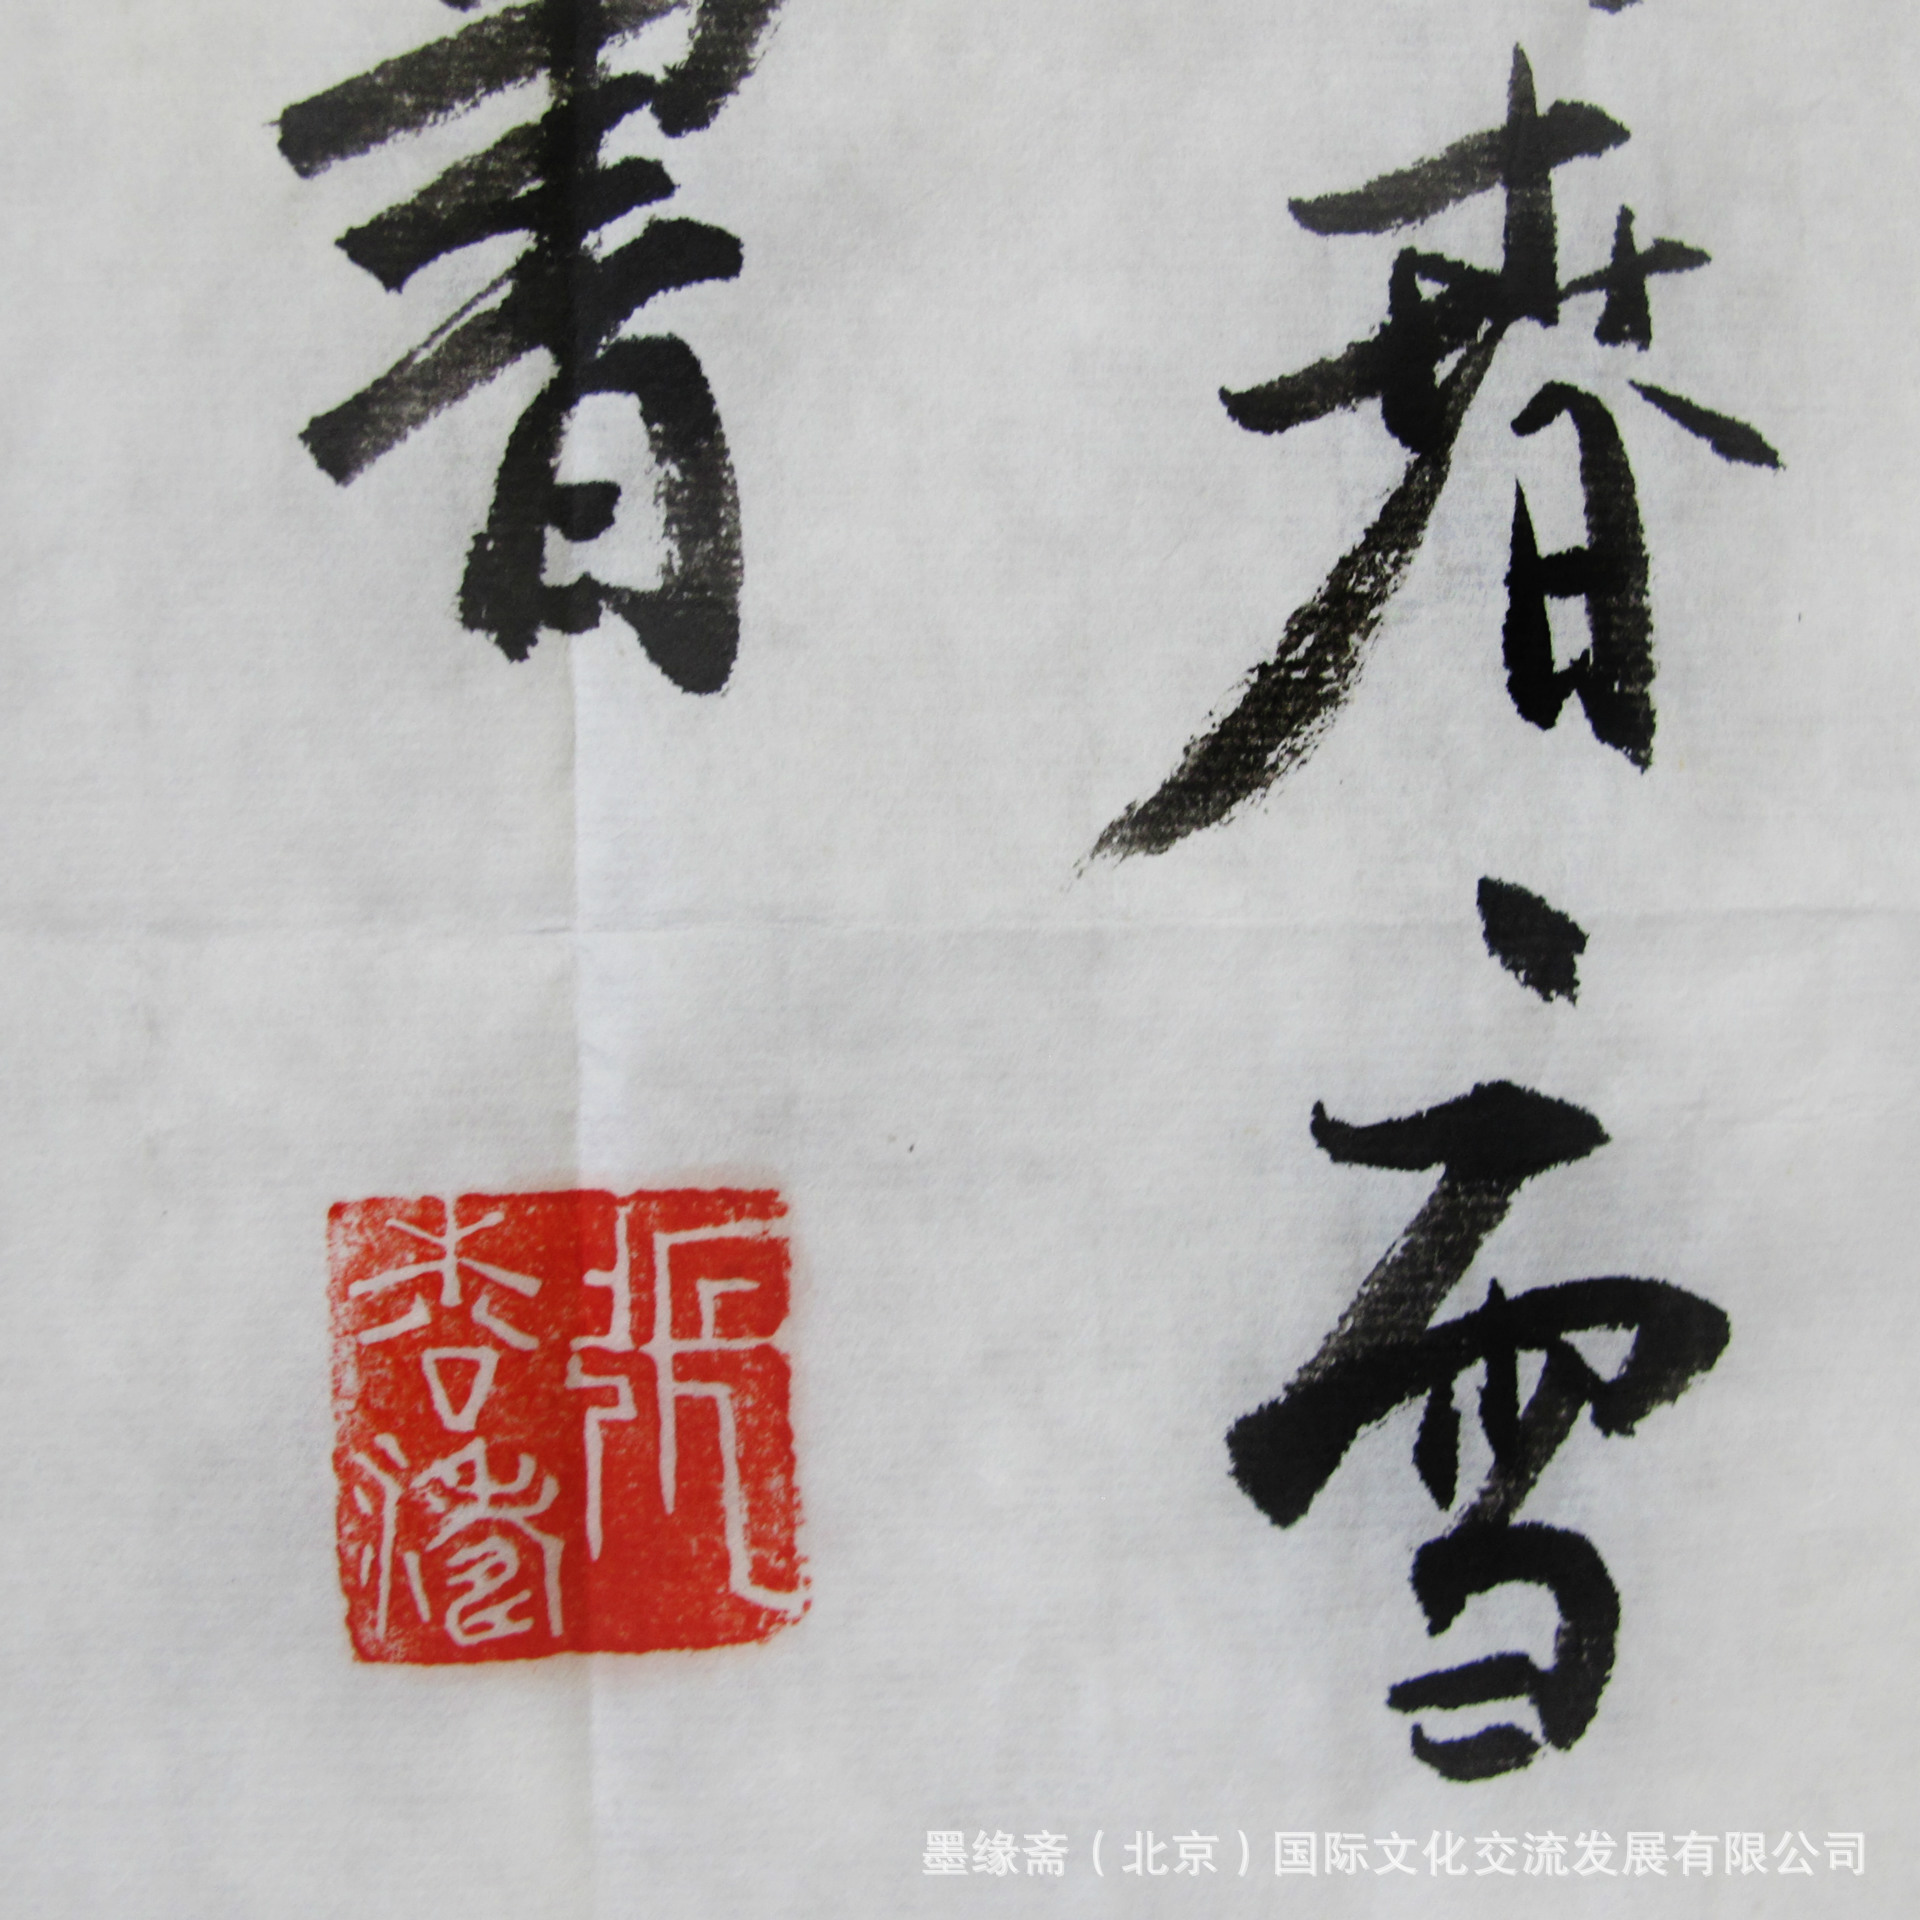 春、雪
書
墨缘斋（北京）国际文化交流发展有限公司